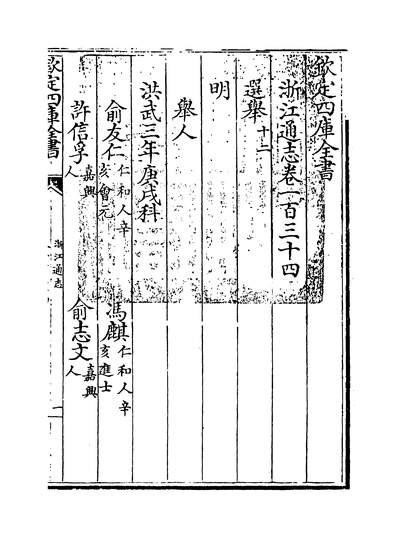 欽定四庫全書
浙江通志卷一百三十四
選舉十二
明
舉人
洪武三年庚戌科
俞友仁仁和人辛亥會元 馮麒仁和人辛亥進士
許信孚嘉興人 俞志文嘉興人
欽定四庫全書 浙江通志 一